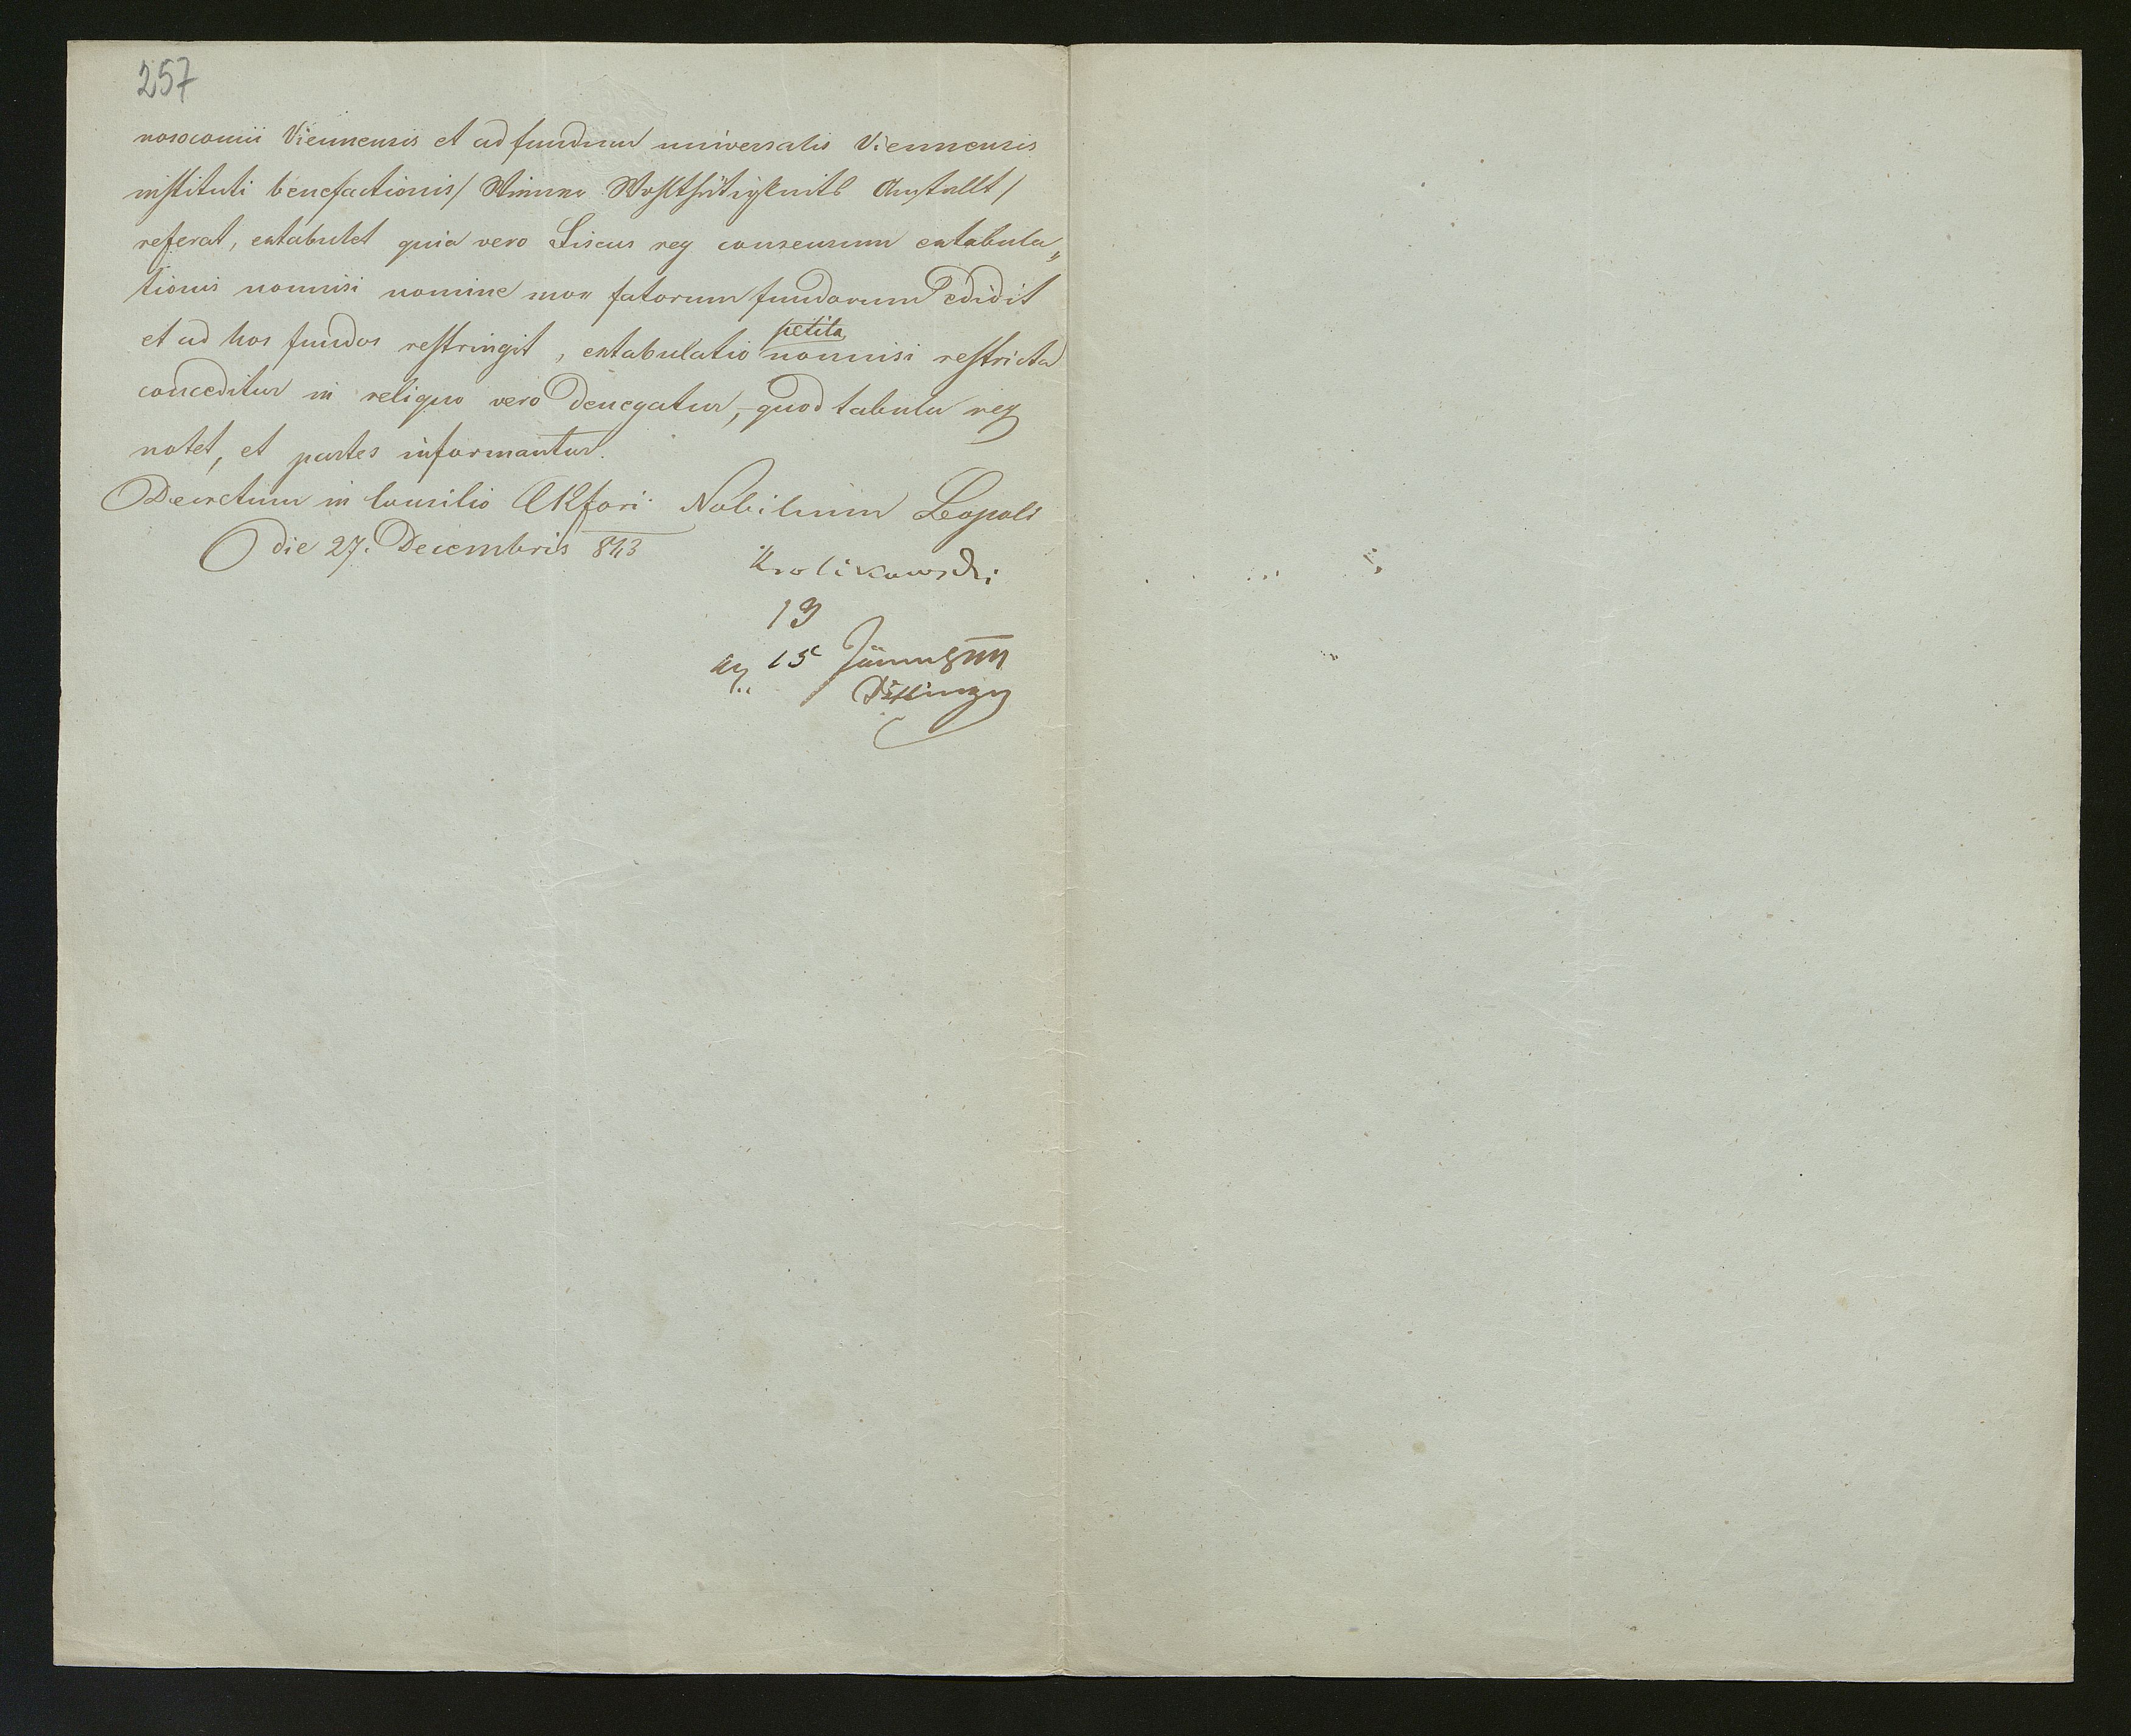 257
nosocomii Viennensis et ad fundum universalis Viennensis
instituti benefactionis / Wiener Wohlthätigkeits Anstallt /
referat, extabulet quia vero Fiscus reg consensum extabula„
tionis nonnisi nomine mox fatorum fundorum edidit
et ad hos fundos restringit, extabulatio petita nonnisi restricta
conceditur in reliquo vero denegatur, quod tabula reg
notet, et partes informantur.
Decretum in Consilio CRfori Nobilium Leopoli
die 27. Decembris 843
Krolikowski
19
15